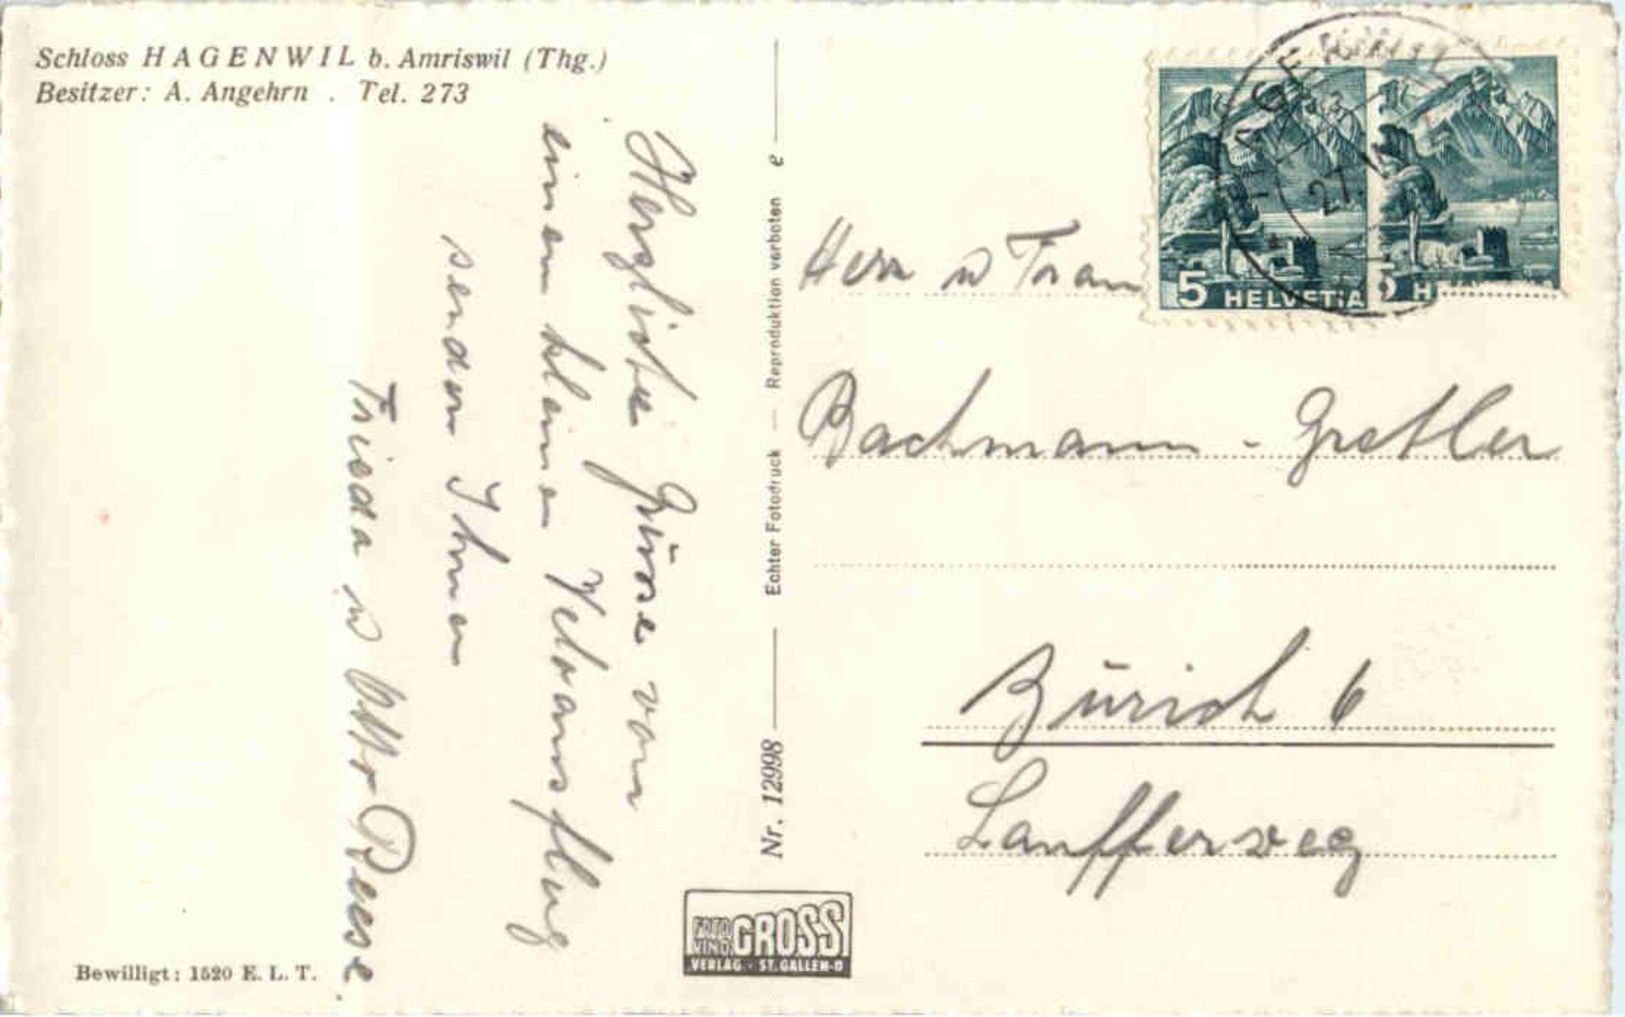 Schloss HAGENWIL b. Amriswil (Thg.)
Besitzer: A. Angehrn . Tel. 273
Herzliche Grüsse von
einem kleinen Veloausflug
senden Ihnen
Frieda u Otto Reese
Bewilligt: 1520 E. L. T.
Nr. 12998 Echter Fotodruck — Reproduktion verboten e
FOTO GROSS
VERLAG · ST. GALLEN-O
HAGENWIL
27
5 HELVETIA
5 HELVETIA
Herr u Frau
Bachmann - Gretler
Zürich 6
Laufferweg